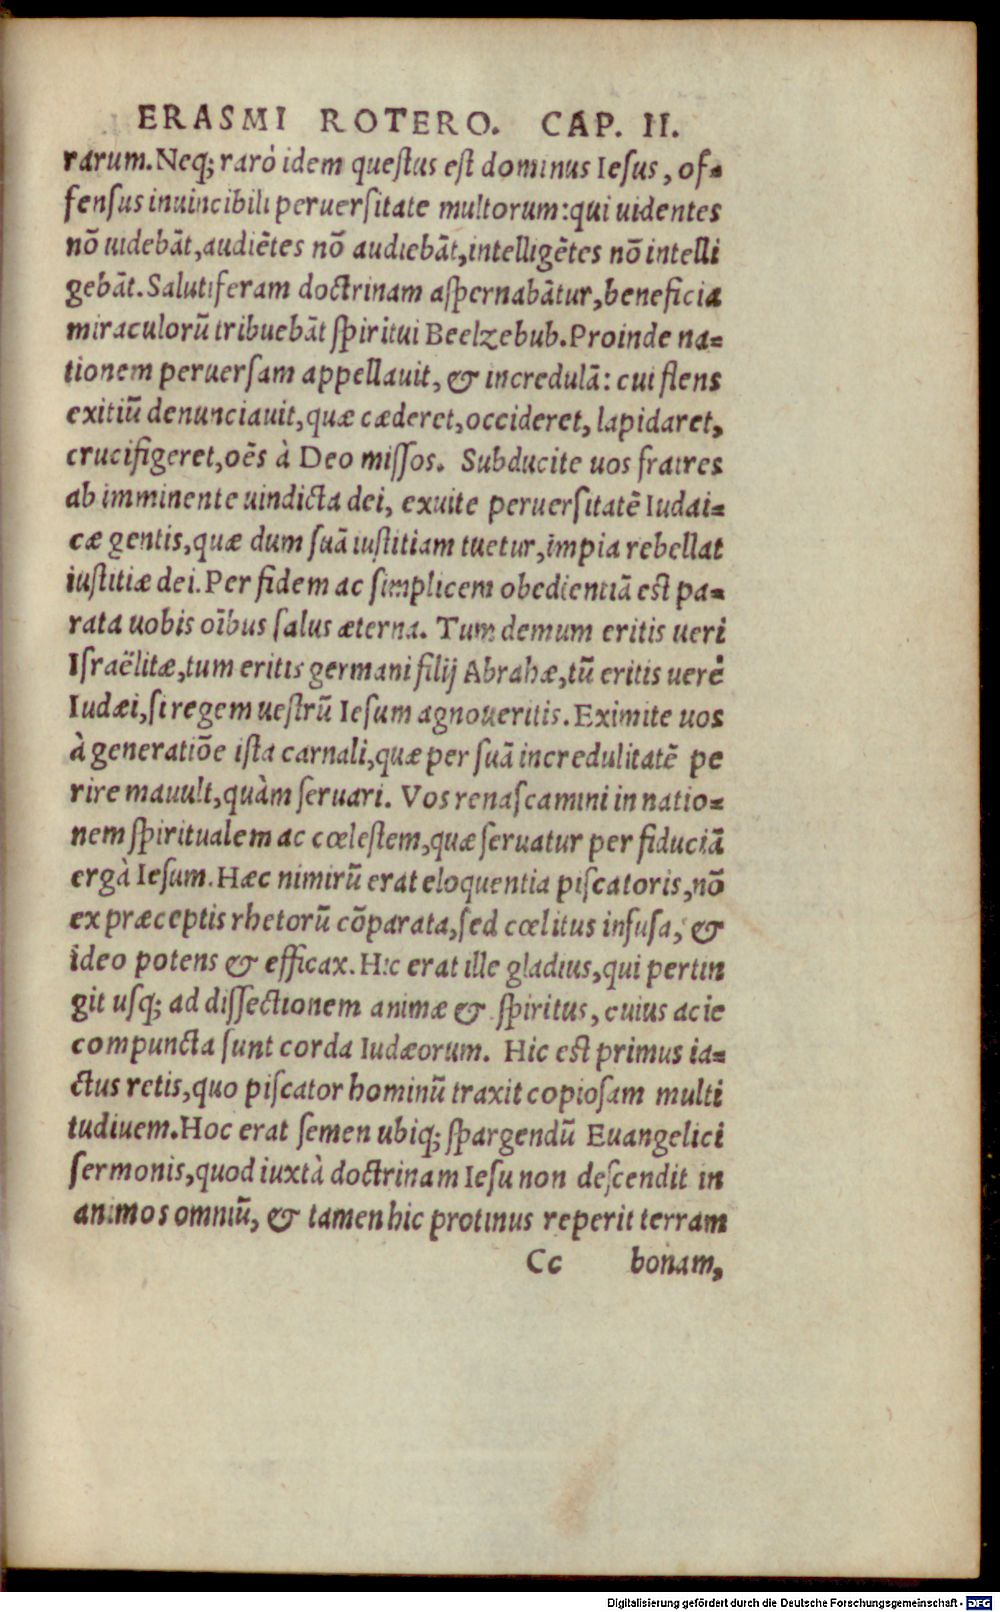 ERASMI ROTERO. CAP. II.
rarum. Neq; rarò idem questus est dominus Iesus, of-
fensus inuincibili peruersitate multorum: qui uidentes
nõ uidebãt, audiẽtes nõ audiebãt, intelligẽtes nõ intelli
gebãt. Salutiferam doctrinam aspernabãtur, beneficia
miraculorũ tribuebãt spiritui Beelzebub. Proinde na-
tionem peruersam appellauit, & incredulã: cui flens
exitiũ denunciauit, quæ cæderet, occideret, lapidaret,
crucifigeret, oẽs à Deo missos. Subducite uos fratres
ab imminente uindicta dei, exuite peruersitatẽ Iudai-
cæ gentis, quæ dum suã iustitiam tuetur, impia rebellat
iustitiæ dei. Per fidem ac simplicem obedientiã est pa-
rata uobis oĩbus salus æterna. Tum demum eritis ueri
Israëlitæ, tum eritis germani filij Abrahæ, tũ eritis uerè
Iudæi, si regem uestrũ Iesum agnoueritis. Eximite uos
à generatiõe ista carnali, quæ per suã incredulitatẽ pe
rire mauult, quàm seruari. Vos renascamini in natio-
nem spiritualem ac cœlestem, quæ seruatur per fiduciã
ergà Iesum. Hæc nimirũ erat eloquentia piscatoris, nõ
ex præceptis rhetorũ cõparata, sed cœlitus infusa, &
ideo potens & efficax. Hic erat ille gladius, qui pertin
git usq; ad dissectionem animæ & spiritus, cuius acie
compuncta sunt corda Iudæorum. Hic est primus ia-
ctus retis, quo piscator hominũ traxit copiosam multi
tudiuem. Hoc erat semen ubiq; spargendũ Euangelici
sermonis, quod iuxtà doctrinam Iesu non descendit in
animos omniũ, & tamen hic protinus reperit terram
Cc bonam,
Digitalisierung gefördert durch die Deutsche Forschungsgemeinschaft - DFG